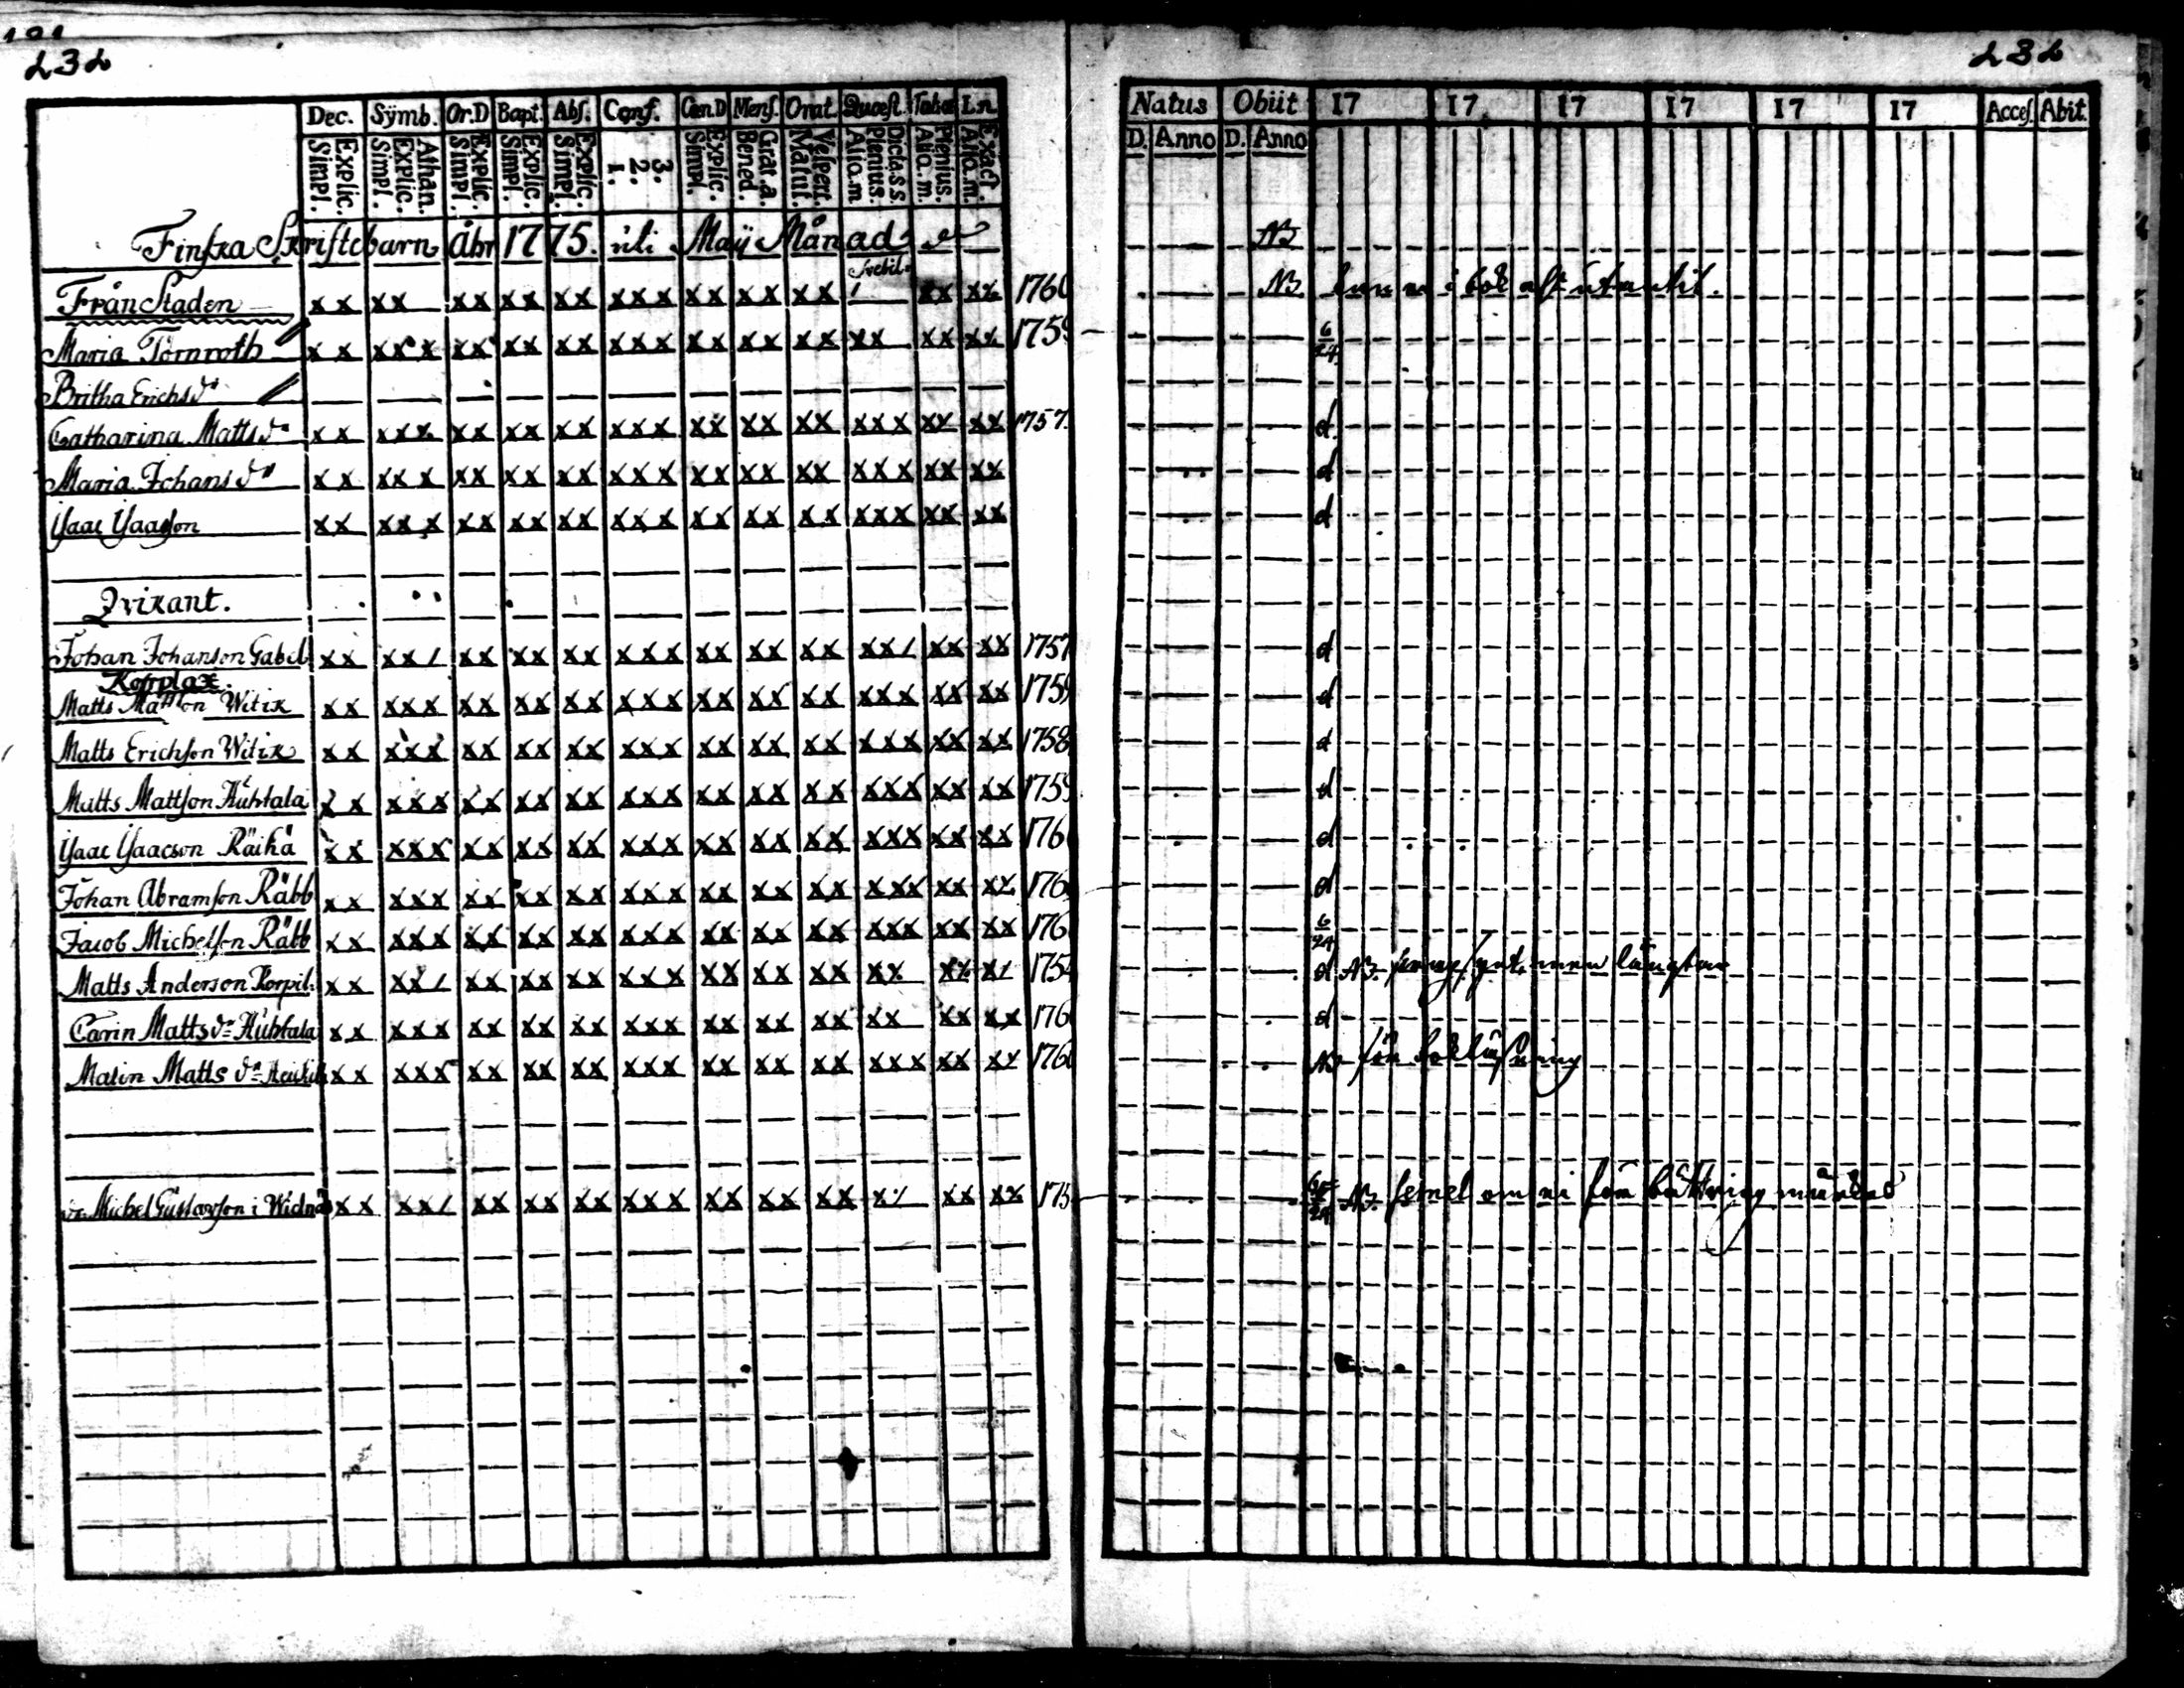 232
232
Dec. Sÿmb. Or.D Bapt. Abſ. Conf. Cœn.D Menſ. Orat. Quæſt. Tabæ I.n.
Explic. Simpl. Athan. Explic. Simpl. Explic. Simpl. Explic. Simpl. Explic. Simpl. 3. 2. 1. Explic. Simpl. Grat.a. Bened. Veſpert. Matut. Dicta s.s. Plenius. Alio.m. Plenius. Alio.m. Exact Alio.m.
Natus Obiit 17 17 17 17 17 17 Acceſ. Abit.
D. Anno D. Anno
Finſka Skriftebarn Åhr 1775. uti Maÿ Månad NB
Svebil.
Från Staden xx xx xx xx xx xxx xx xx xx / xx xx 1760 NB i bok utantil.
Maria Törnroth xx xxx xx xx xx xxx xx xx xx xx xx xx 1759 6/24
Britha Erichs dr
Catharina Matts dr xx xxx xx xx xx xxx xx xx xx xxx xx xx 1757. d.
Maria Johans dr xx xxx xx xx xx xxx xx xx xx xxx xx xx d
Iſaac Iſaacſon xx xxx xx xx xx xxx xx xx xx xxx xx xx d
Qvikant.
Johan Johanson Gabel xx xx/ xx xx xx xxx xx xx xx xx/ xx xx 1757 d
Korplax.
Matts Mattſon Witik xx xxx xx xx xx xxx xx xx xx xxx xx xx 1759 d
Matts Erichſon Witik xx xxx xx xx xx xxx xx xx xx xxx xx xx 1758 d
Matts Mattſon Huhtala xx xxx xx xx xx xxx xx xx xx xxx xx xx 1759 d
Iſaac Iſaacson Räihä xx xxx xx xx xx xxx xx xx xx xxx xx xx 176 d
Johan Abramſon Räbb xx xxx xx xx xx xxx xx xx xx xxx xx xx 176 d
Jacob Michelſon Räbb xx xxx xx xx xx xxx xx xx xx xxx xx xx 176 6/24
Matts Anderson Korpil: xx xx/ xx xx xx xxx xx xx xx xx xx x/ 175 d NB. men
Carin Matts dr Huhtala xx xxx xx xx xx xxx xx xx xx xx xx xx 176 d
Malin Matts dr xx xxx xx xx xx xxx xx xx xx xxx xx xx 176 NB för bokläsning
Michel Gustavſon i xx xx/ xx xx xx xxx xx xx xx x/ xx xx 175 NB. semel om ei för bättring märkes